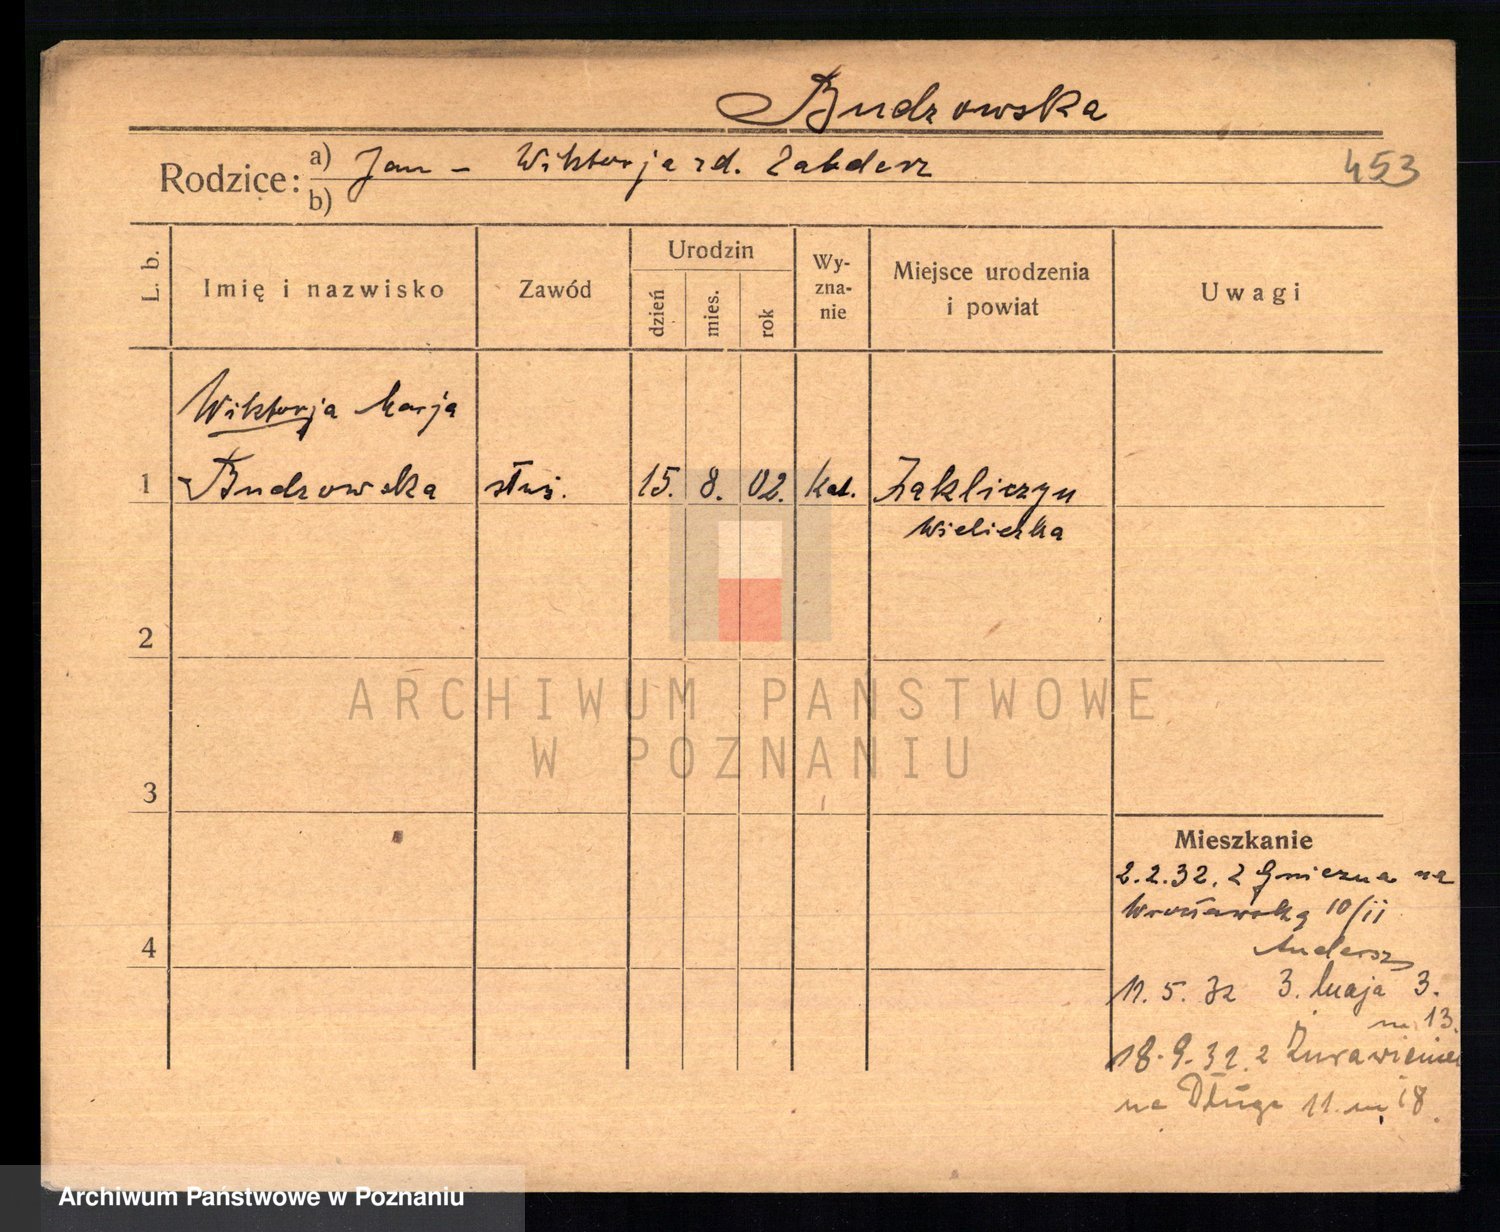 Budzowska
Rodzice: a) Jan - Wiktorja zd.
453
b)
L. b.
Imię i nazwisko
Zawód
Urodzin
dzień
mies.
rok
Wy-
zna-
nie
Miejsce urodzenia
i powiat
Uwagi
Wiktorja Marja
1 Budzowska służ. 15. 8. 02. Kat. Zakliczyn
Wieliczka
2
ARCHIWUM PAŃSTWOWE
W POZNANIU
3
Mieszkanie
2.2.32. z Gniezna na
Wrocławską 10/II
Andersz
11. 5. 32 3. Maja 3.
m. 13.
18. 9. 32. z
na Długą 11. m. 18.
4
Archiwum Państwowe w Poznaniu